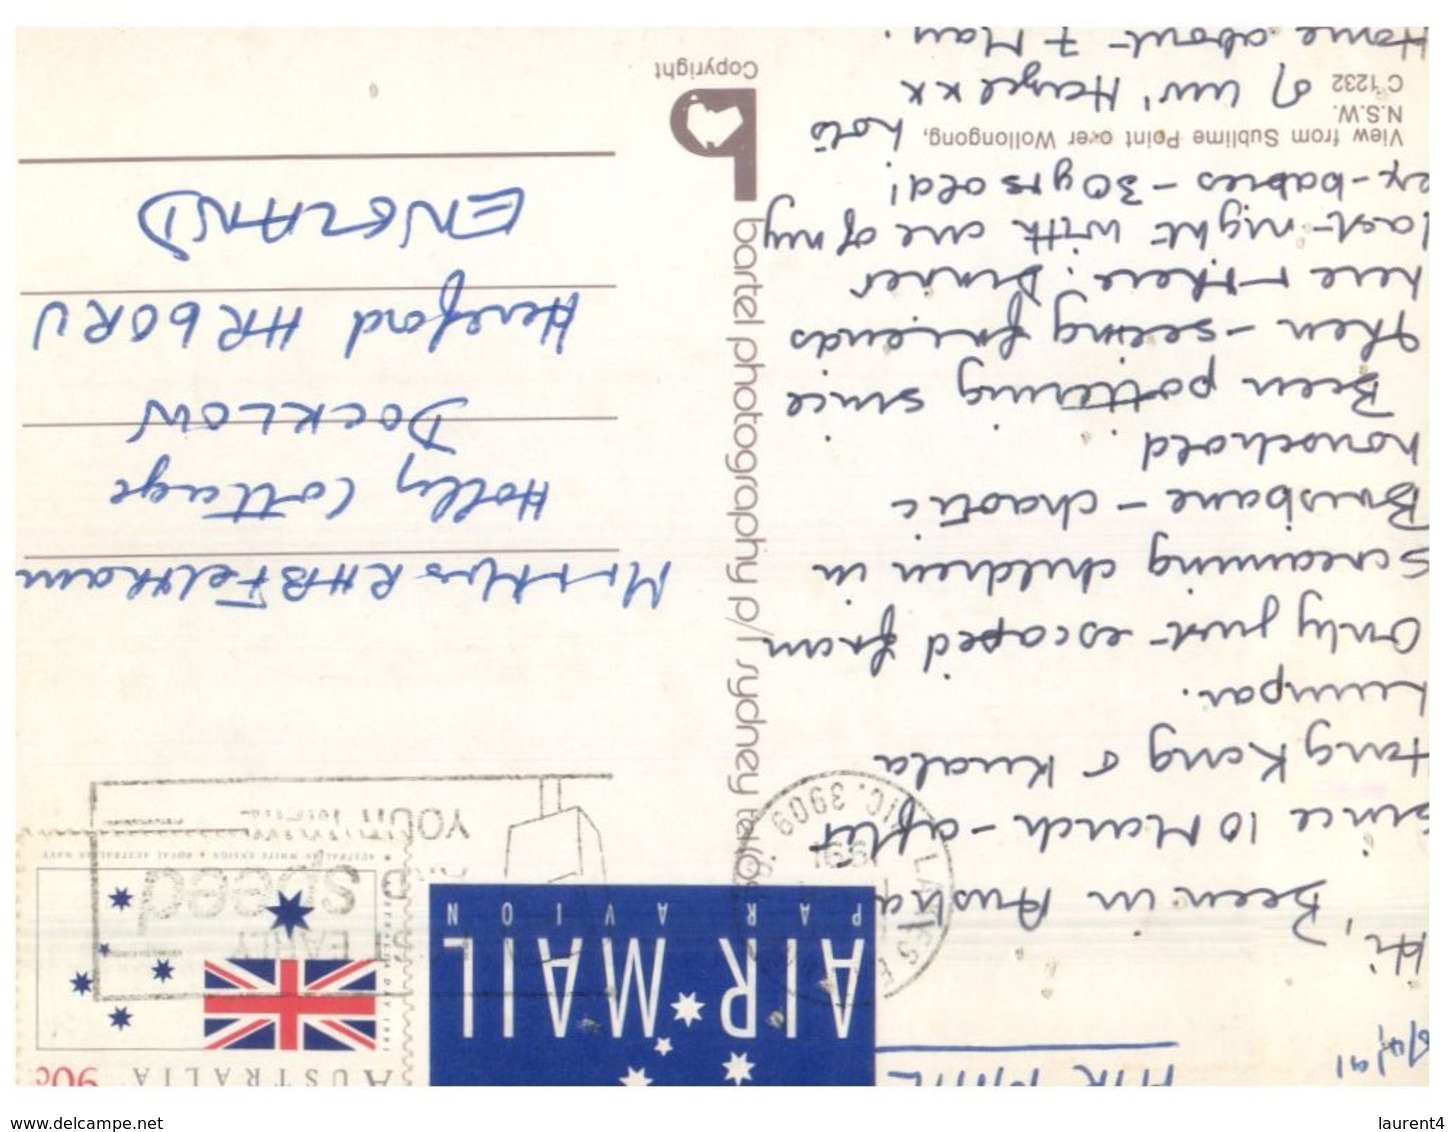 AIR MAIL
8/4/91
Hi,
Been in Australia
since 10 March - after
Hong Kong & Kuala
Lumpar.
Only just escaped from
screaming children in
Brisbane - chaotic
household
Been pottering since
then - seeing friends
here & there. Dinner
last night with one of my
ex-babies - 30yrs old!
View from Sublime Point over Wollongong,
N.S.W.
C 1232
lots
of luv' Hazel x x
Home about 7 May.
bartel photography p/l sydney tel:
Copyright
AIR MAIL
PAR AVION
AUSTRALIA
90c
AUSTRALIAN WHITE ENSIGN ROYAL AUSTRALIAN NAVY
AUSTRALIA DAY 1991
LAKES E
VIC. 3909
1991
POST EARLY
AND speed
YOUR MAIL
Mr & Mrs R H B Feltham
Holly Cottage
DOCKLOW
Hereford HR6 0RU
ENGLAND
www.delcampe.net
laurent4